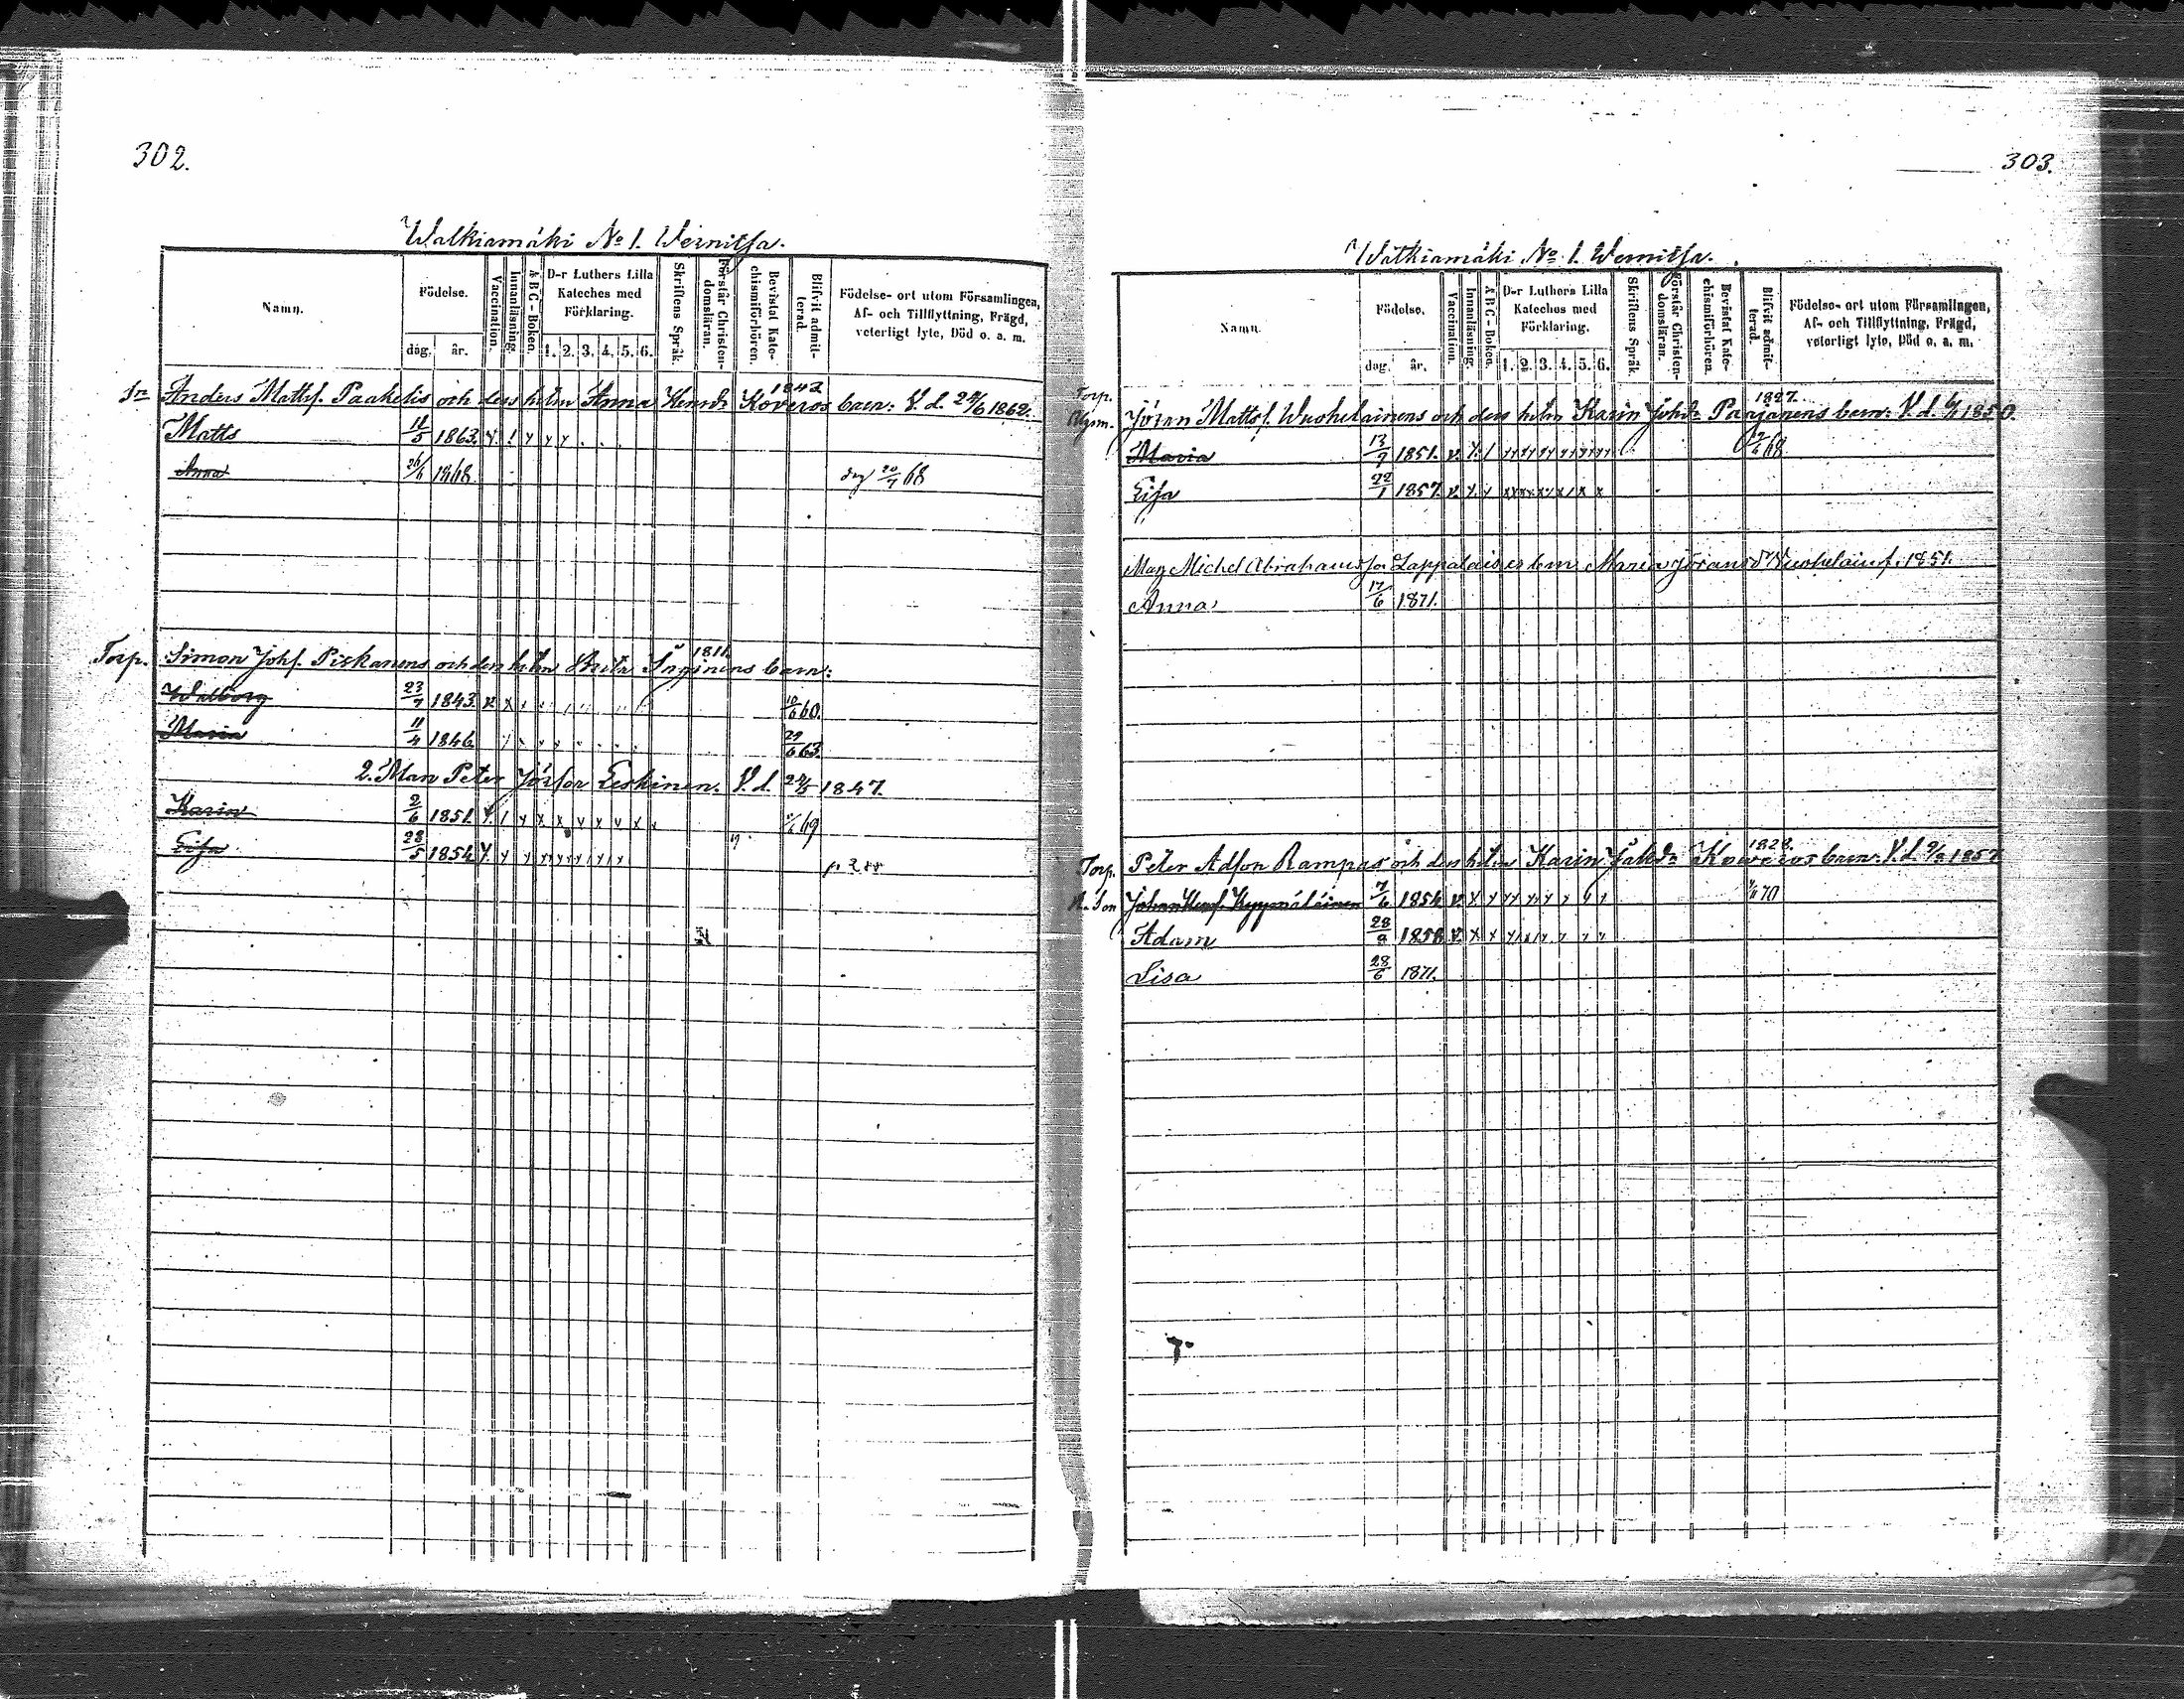 302.
Walkiamäki No 1. Wernitsa.
Namn.
Födelse.
dag. år.
Vaccination.
Innanläsning.
A B C - Boken.
D-r Luthers Lilla
Kateches med
Förklaring.
1. 2. 3. 4. 5. 6.
Skriftens Språk.
Förstår Christen-
domsläran.
Bevistat Kate-
chismiförhören.
Blifvit admit-
terad.
Födelse- ort utom Församlingen,
Af- och Tillflyttning, Frägd,
veterligt lyte, Död o. a. m.
Anders Mattsf. Paakelis och dess h: Anna Henrdr Koveros 1843 barn: V. d. 24/6 1862.
Matts 11/5 1863.
Anna 26/6 1868 20/7 68
Torp. Simon Johf. Piskanens och dess h: Brita 1811 barn:
Walborg 23/7 1843. 10/6 60.
Maria 11/4 1846 29/6 63.
2. Man Peter Leskinen. V. d. 1847
Karin 2/6 1851. 69
Eifa 28/5 1854 p. 288
303.
Walkiamäki No 1. Wernitsa.
Namn.
Födelse.
dag. år.
Vaccination.
Innanläsning.
A B C - Boken.
D-r Luthers Lilla
Kateches med
Förklaring.
1. 2. 3. 4. 5. 6.
Skriftens Språk.
Förstår Christen-
domsläran.
Bevistat Kate-
chismiförhören.
Blifvit admit-
terad.
Födelse- ort utom Församlingen,
Af- och Tillflyttning, Frägd,
veterligt lyte, Död o. a. m.
Torp.
Jöran Mattsf. Wuohelainens och dess h: Karin Johdr Paajanens 1827. barn: V. d. 1850.
Maria 13/7 1851. 68
Eifa 22/1 1857.
Måg Michel Abrahamsson Lappalais Maria Jöransdr Wuohelain f. 1851.
Anna 17/6 1871.
Torp. Peter Adfon Rampas och dess h: Karin Koveros 1828. barn: V. d. 1857
Johan 7/6 1854 70
Adam 28/9 1858
Lisa 28/6 1871.